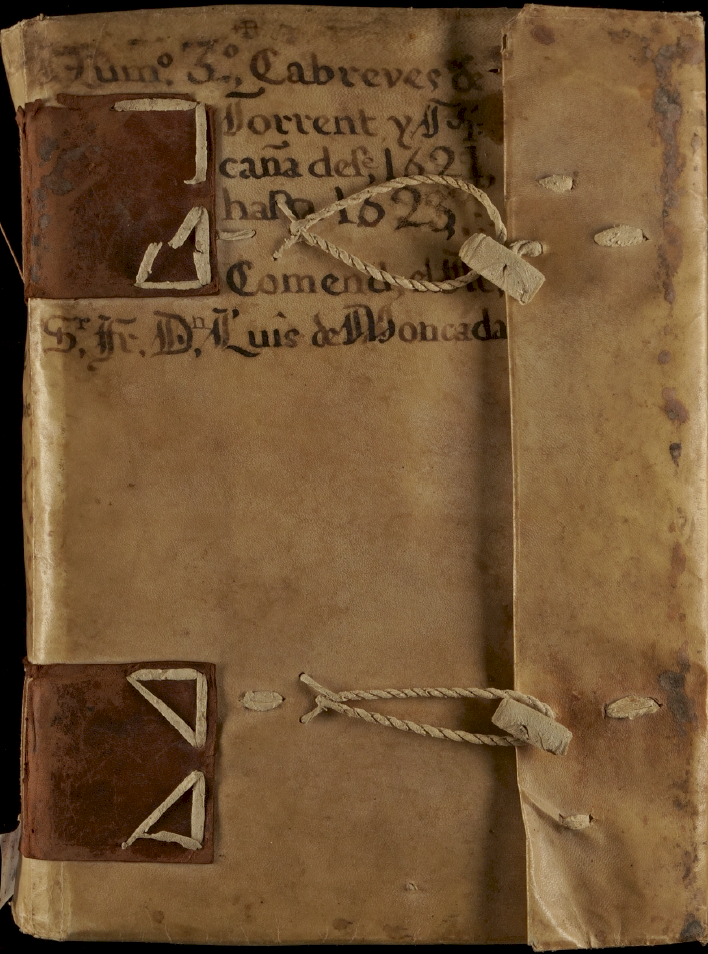 Numº. 3º, Cabreves de
Torrent y Pi
caña desᵉ, 1621,
hasta 1623,
Comendʳ, el Illᵉ,
Sʳ. Fr. Dⁿ, Luis de Moncada